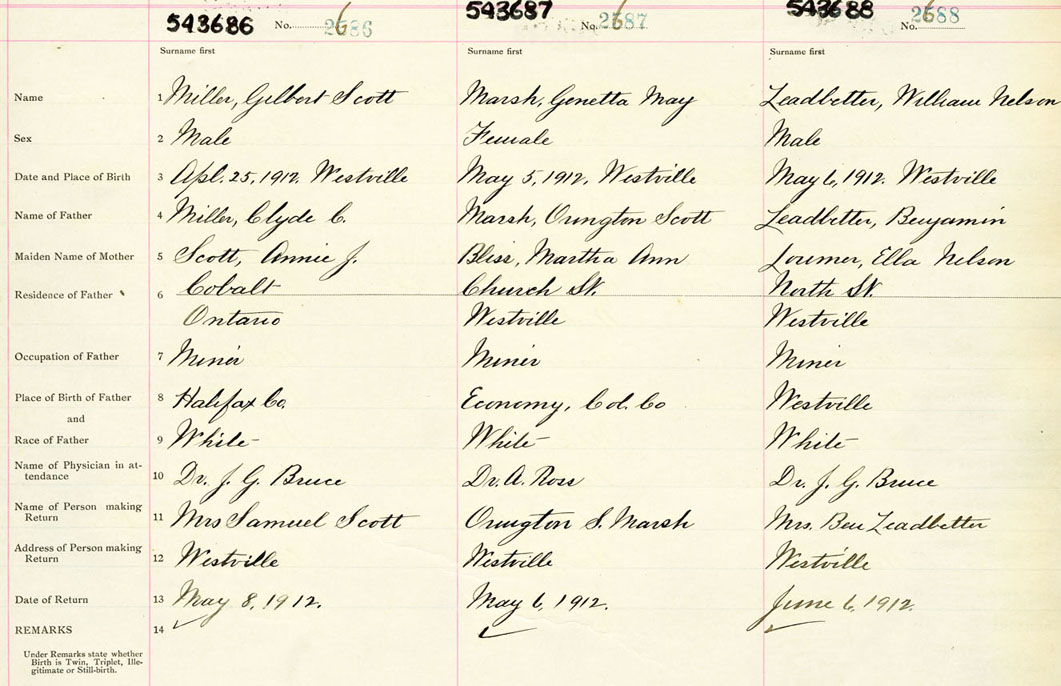 543686 No. 2686 543687 No. 2687 543688 No. 2688
Surname first Surname first Surname first
Name 1 Miller, Gilbert Scott Marsh, Genetta May Leadbetter, William Nelson
Sex 2 Male Female Male
Date and Place of Birth 3 Apl. 25, 1912. Westville May 5, 1912. Westville May 6, 1912. Westville
Name of Father 4 Miller, Clyde C. Marsh, Orington Scott Leadbetter, Benjamin
Maiden Name of Mother 5 Scott, Annie J. Bliss, Martha Ann Lorimer, Ella Nelson
Residence of Father 6 Cobalt Church St. North St.
Ontario Westville Westville
Occupation of Father 7 Miner Miner Miner
Place of Birth of Father 8 Halifax Co. Economy, Col. Co Westville
and
Race of Father 9 White White White
Name of Physician in at-
tendance 10 Dr. J. G. Bruce Dr. A. Ross Dr. J. G. Bruce
Name of Person making
Return 11 Mrs Samuel Scott Orington S. Marsh Mrs. Ben Leadbetter
Address of Person making
Return 12 Westville Westville Westville
Date of Return 13 May 8, 1912. May 6, 1912. June 6, 1912.
REMARKS 14
Under Remarks state whether
Birth is Twin, Triplet, Ille-
gitimate or Still-birth.